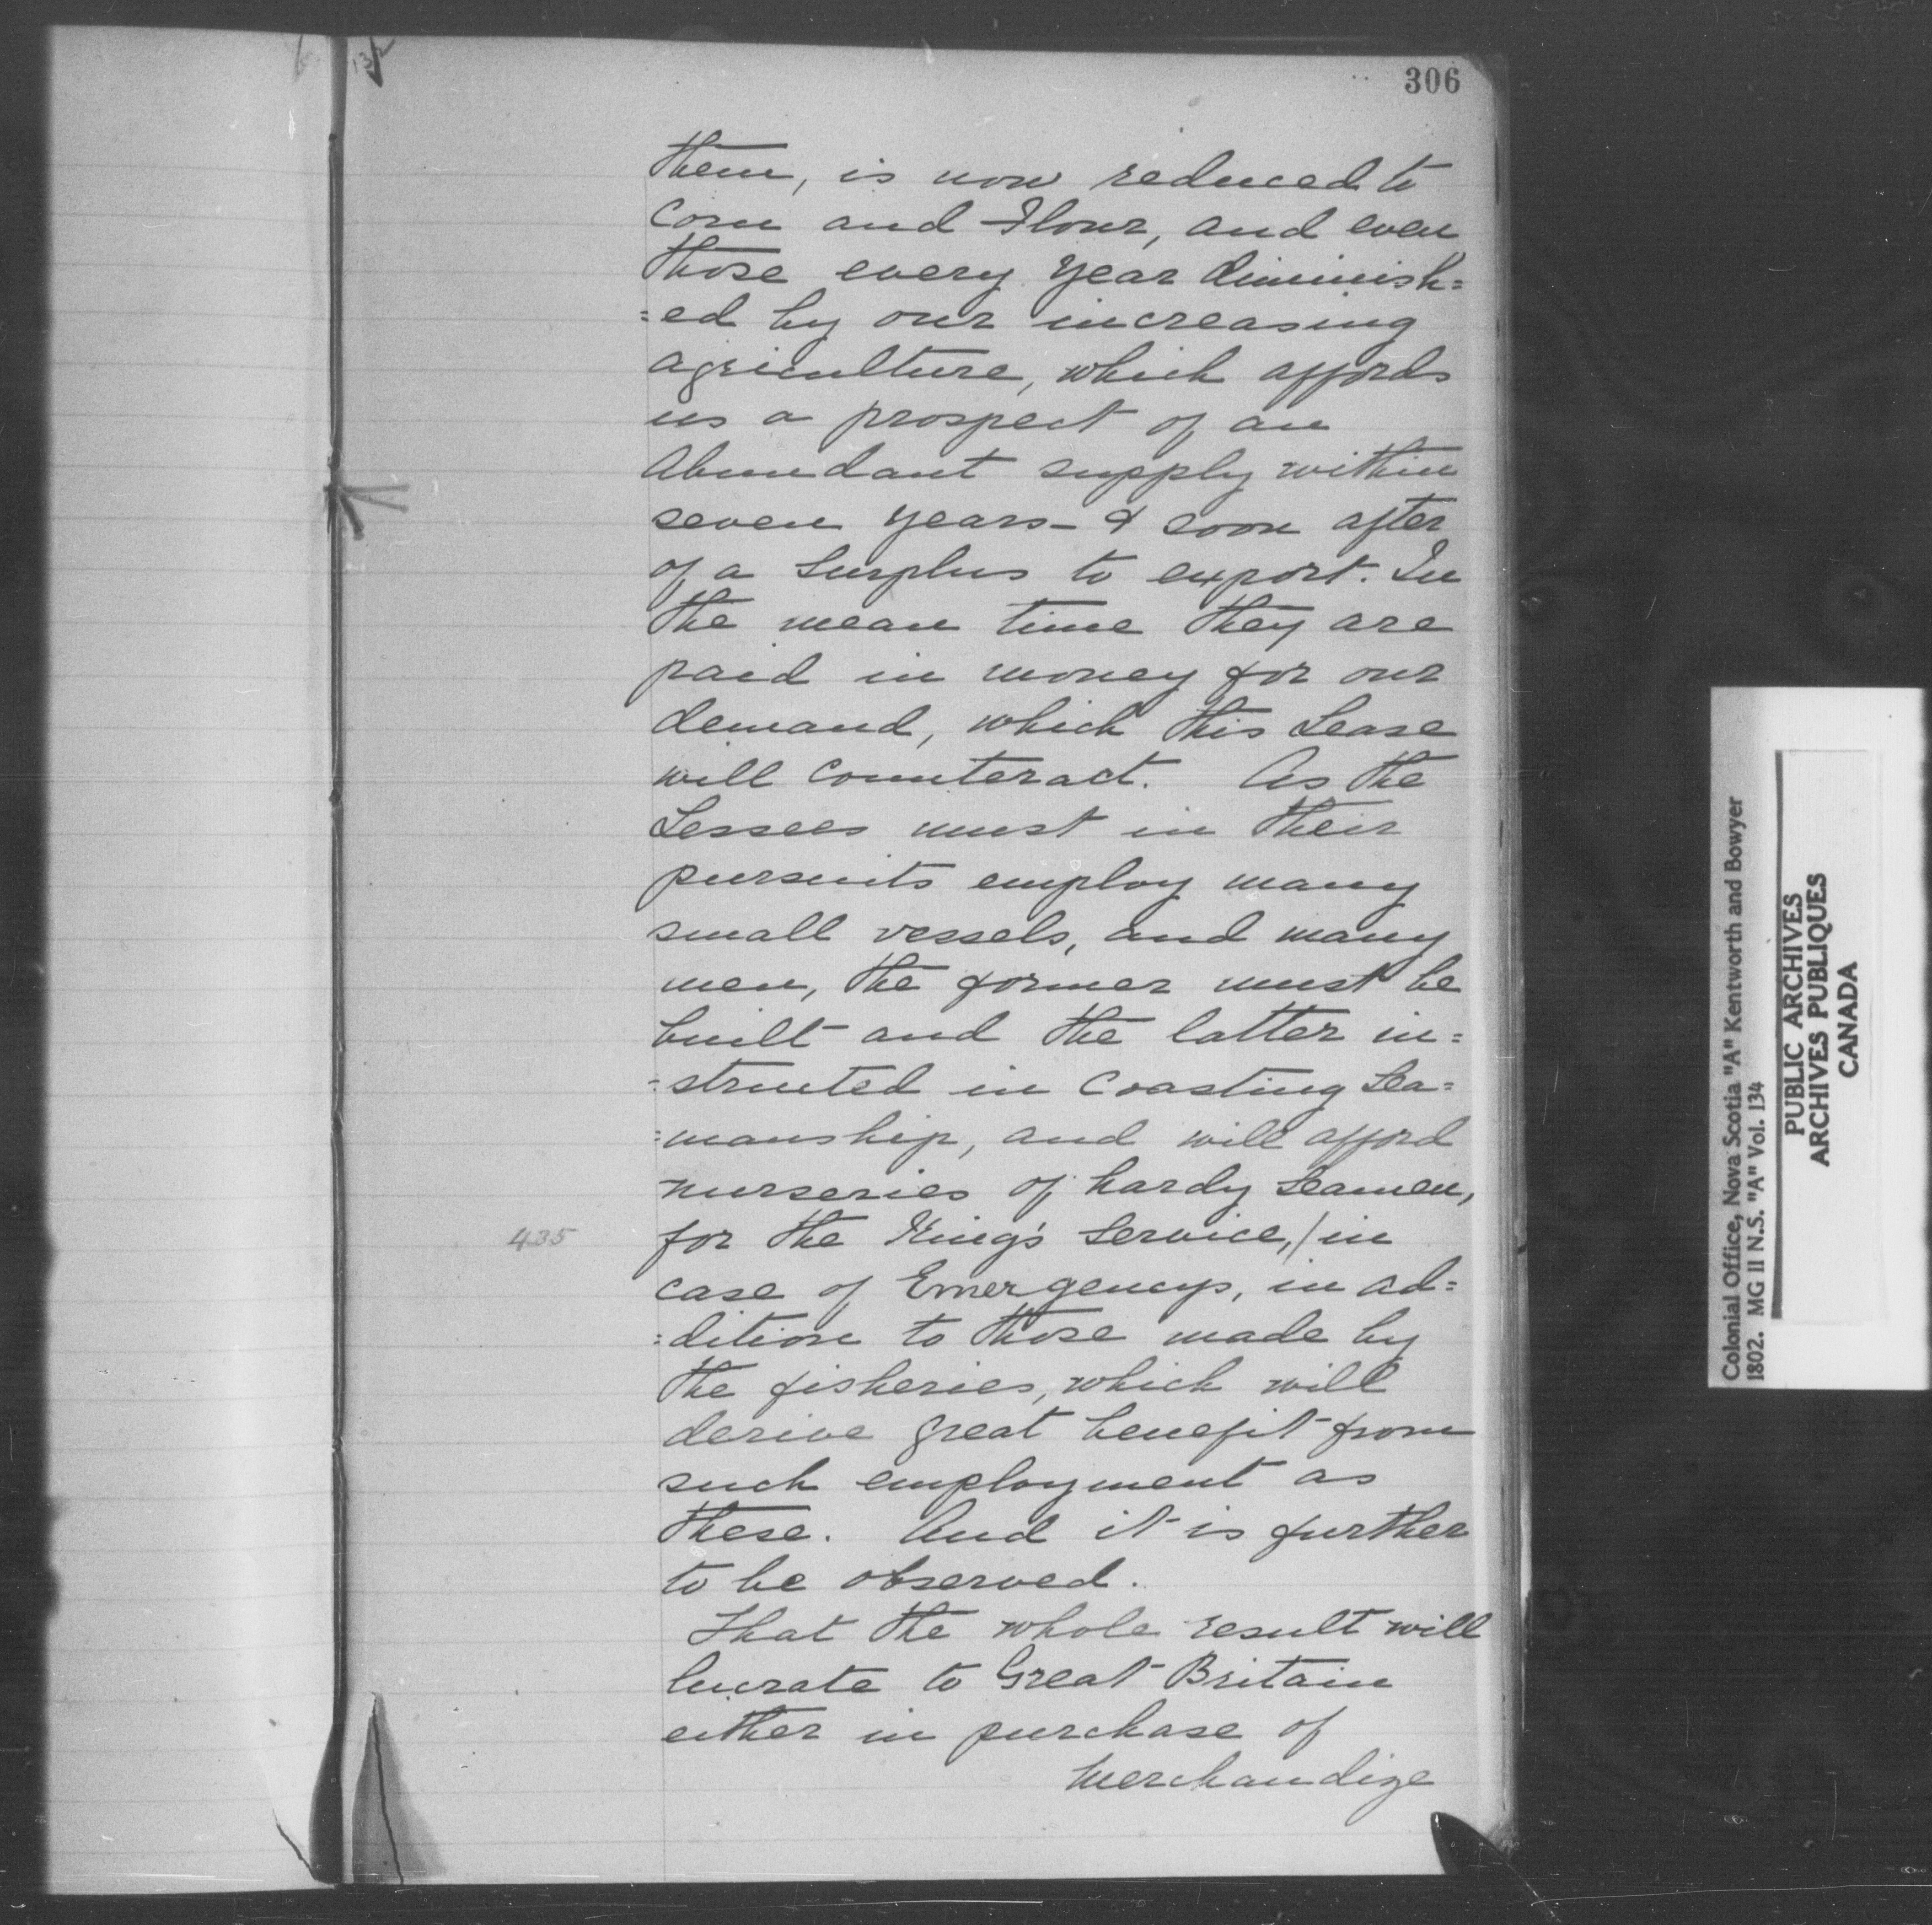 306
them, is now reduced to
Corn and Flour, and even
those every year diminish=
=ed by our increasing
agriculture, which affords
us a prospect of an
Abundant supply within
seven years - & soon after
of a Surplus to export. In
the mean time they are
paid in money for our
demand, which this Lease
will Counteract. As the
Lessees must in their
pursuits employ many
small vessels, and many
men, the former must be
built and the latter in=
=structed in Coasting Sea=
=manship, and will afford
nurseries of hardy Seamen,
435
for the King's Service,/ in
case of Emergencys, in ad=
=dition to those made by
the fisheries, which will
derive great benefit from
such employment as
these. And it is further
to be observed.
That the whole result will
lucrate to Great Britain
either in purchase of
Merchandize
Colonial Office, Nova Scotia "A" Kentworth and Bowyer
1802. MG 11 N.S. "A" Vol. 134
PUBLIC ARCHIVES
ARCHIVES PUBLIQUES
CANADA